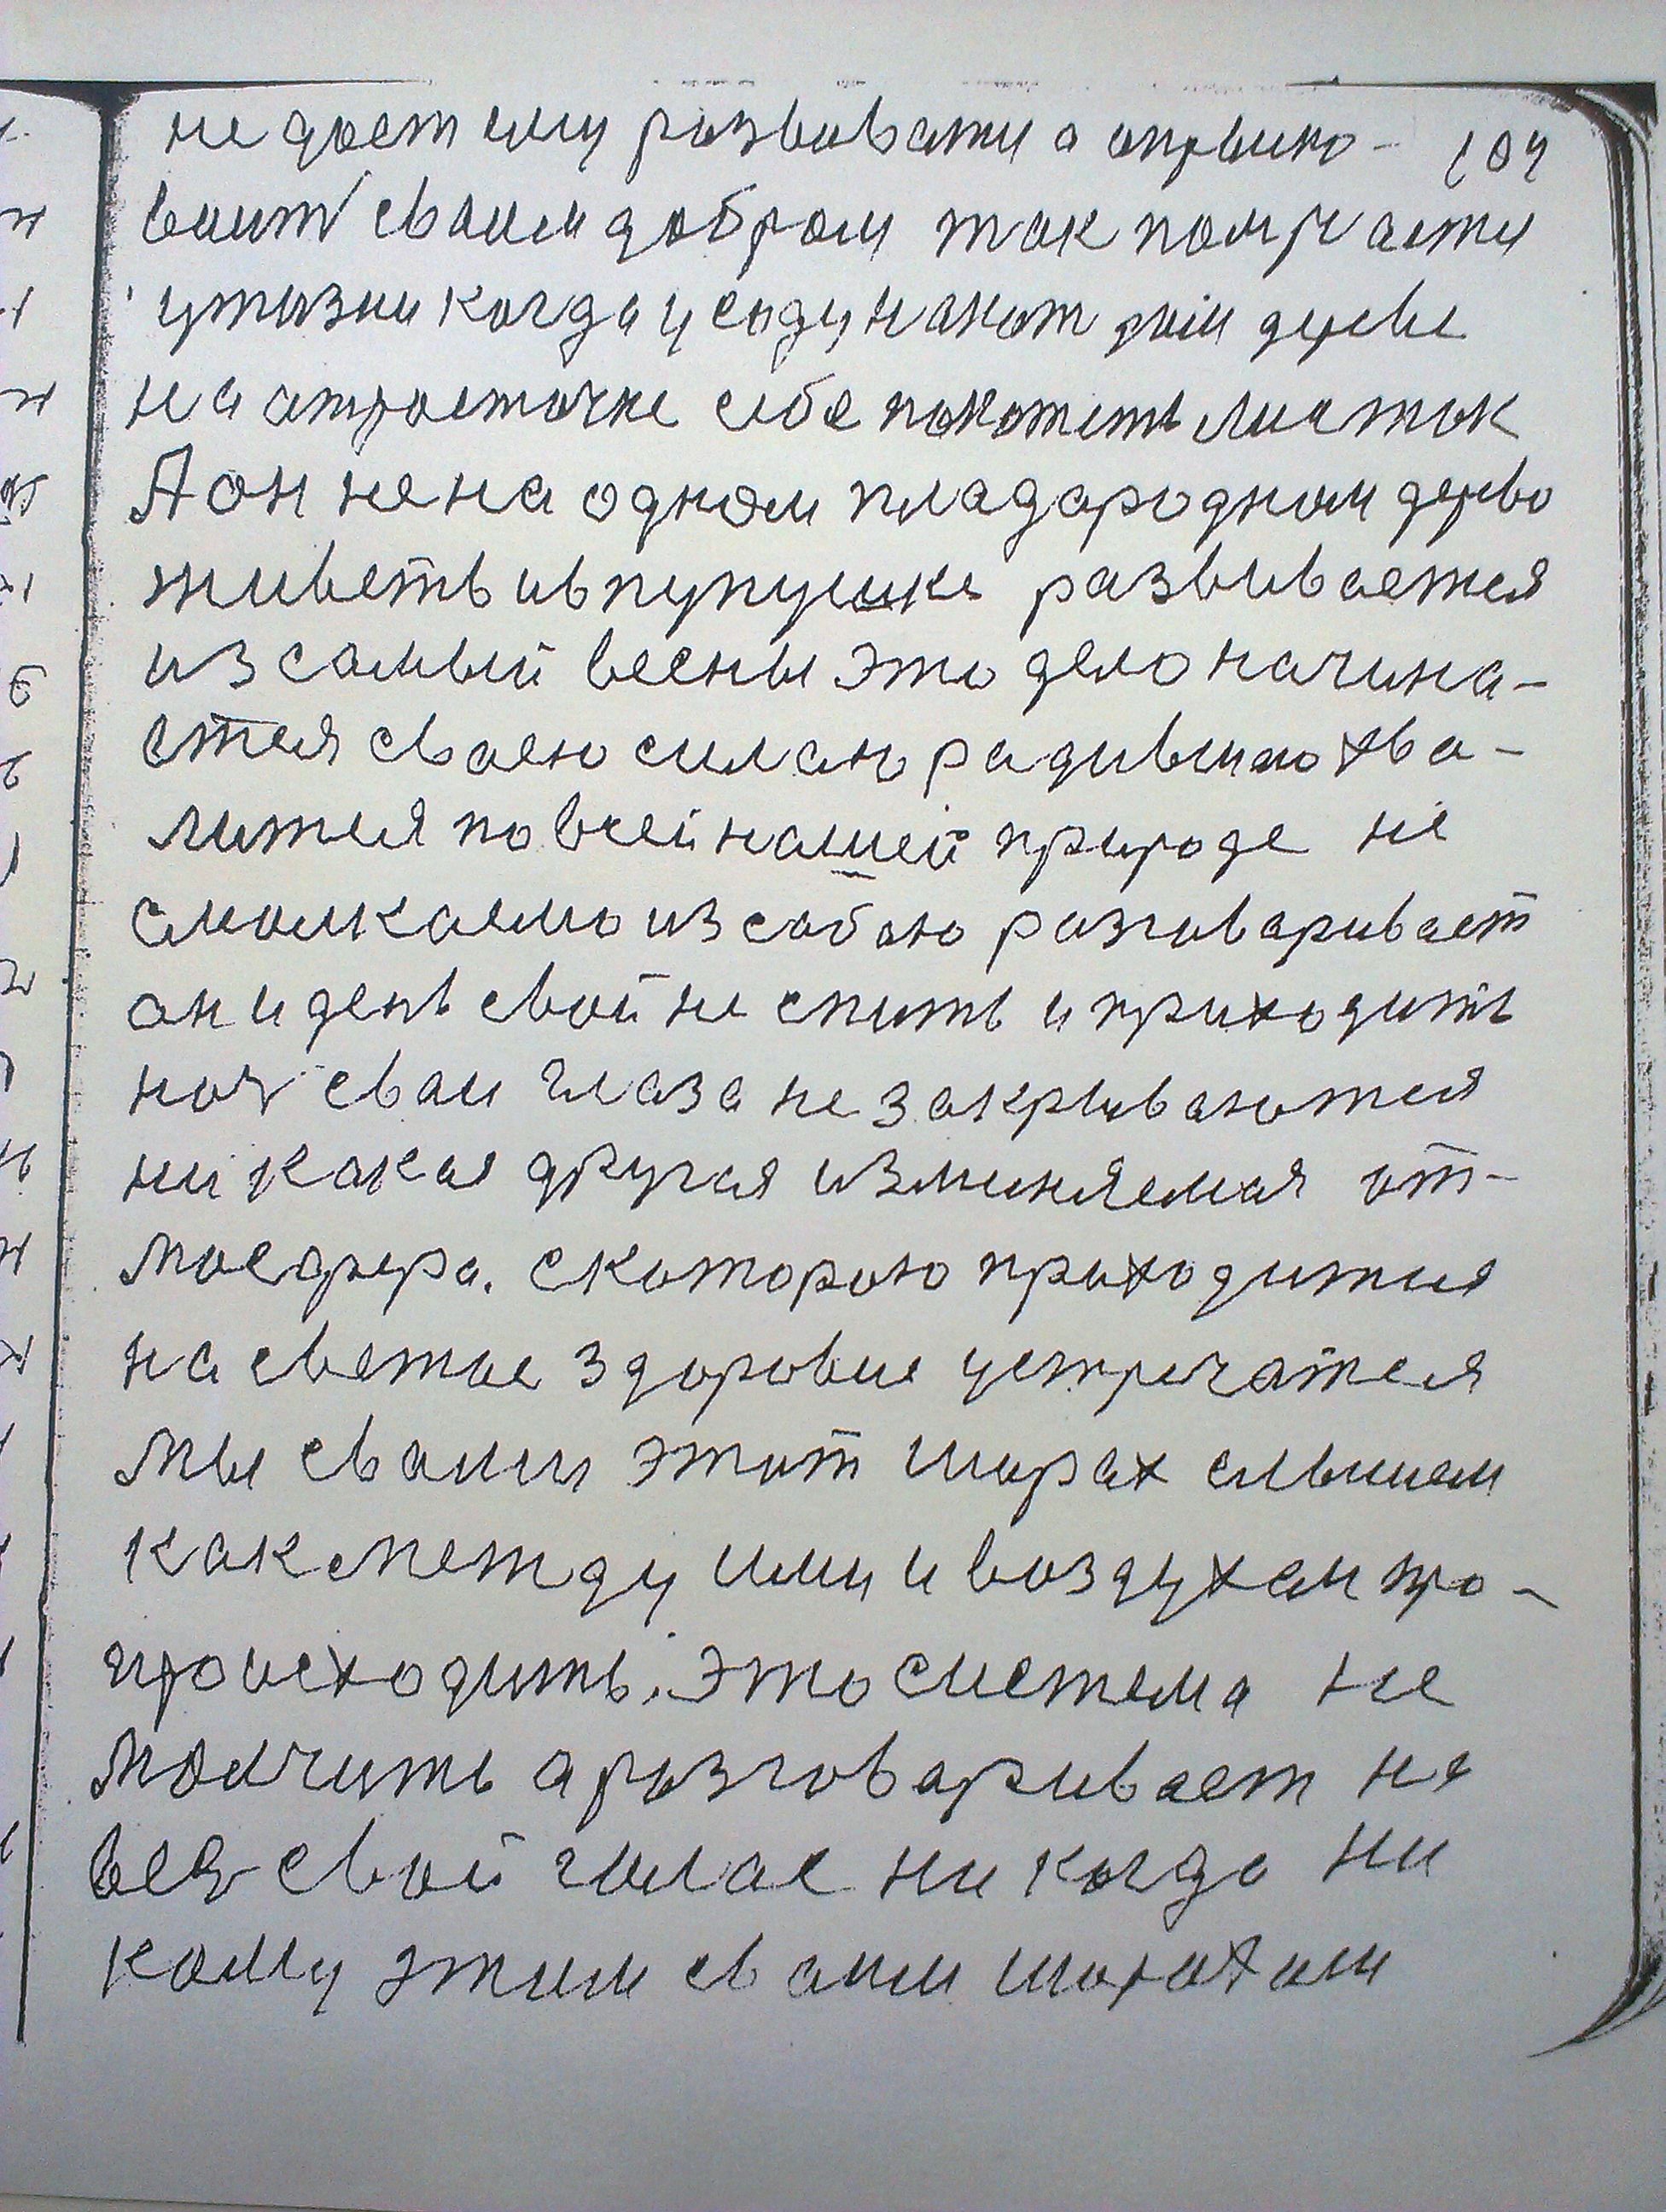 не дает ему развивати а открыто- 104
ваит сваим добром так помрчаети
ужизни когда у саду на котором дереве
на атросточке себе покажеть листок
А он не на одном пладародном дерево
живеть ивпупушке развивается
из самый весны это дело начина-
ется сваею силаю радившию хва-
литися по всей нашей природе не
смолкаемо из сабаю разговаривает
он и день свой не спить и приходить
ноч сваи глаза не закрываются
ни какая другая изминяемая от-
мосфера. скоторою приходится
на светое здоровие устречатся
мы свами этот шорах слышем
как между ими и воздухам про-
происходить. Это система не
молчить а разговаривает на
весь свой голас ни когда ни
кому этим сваим шорохам